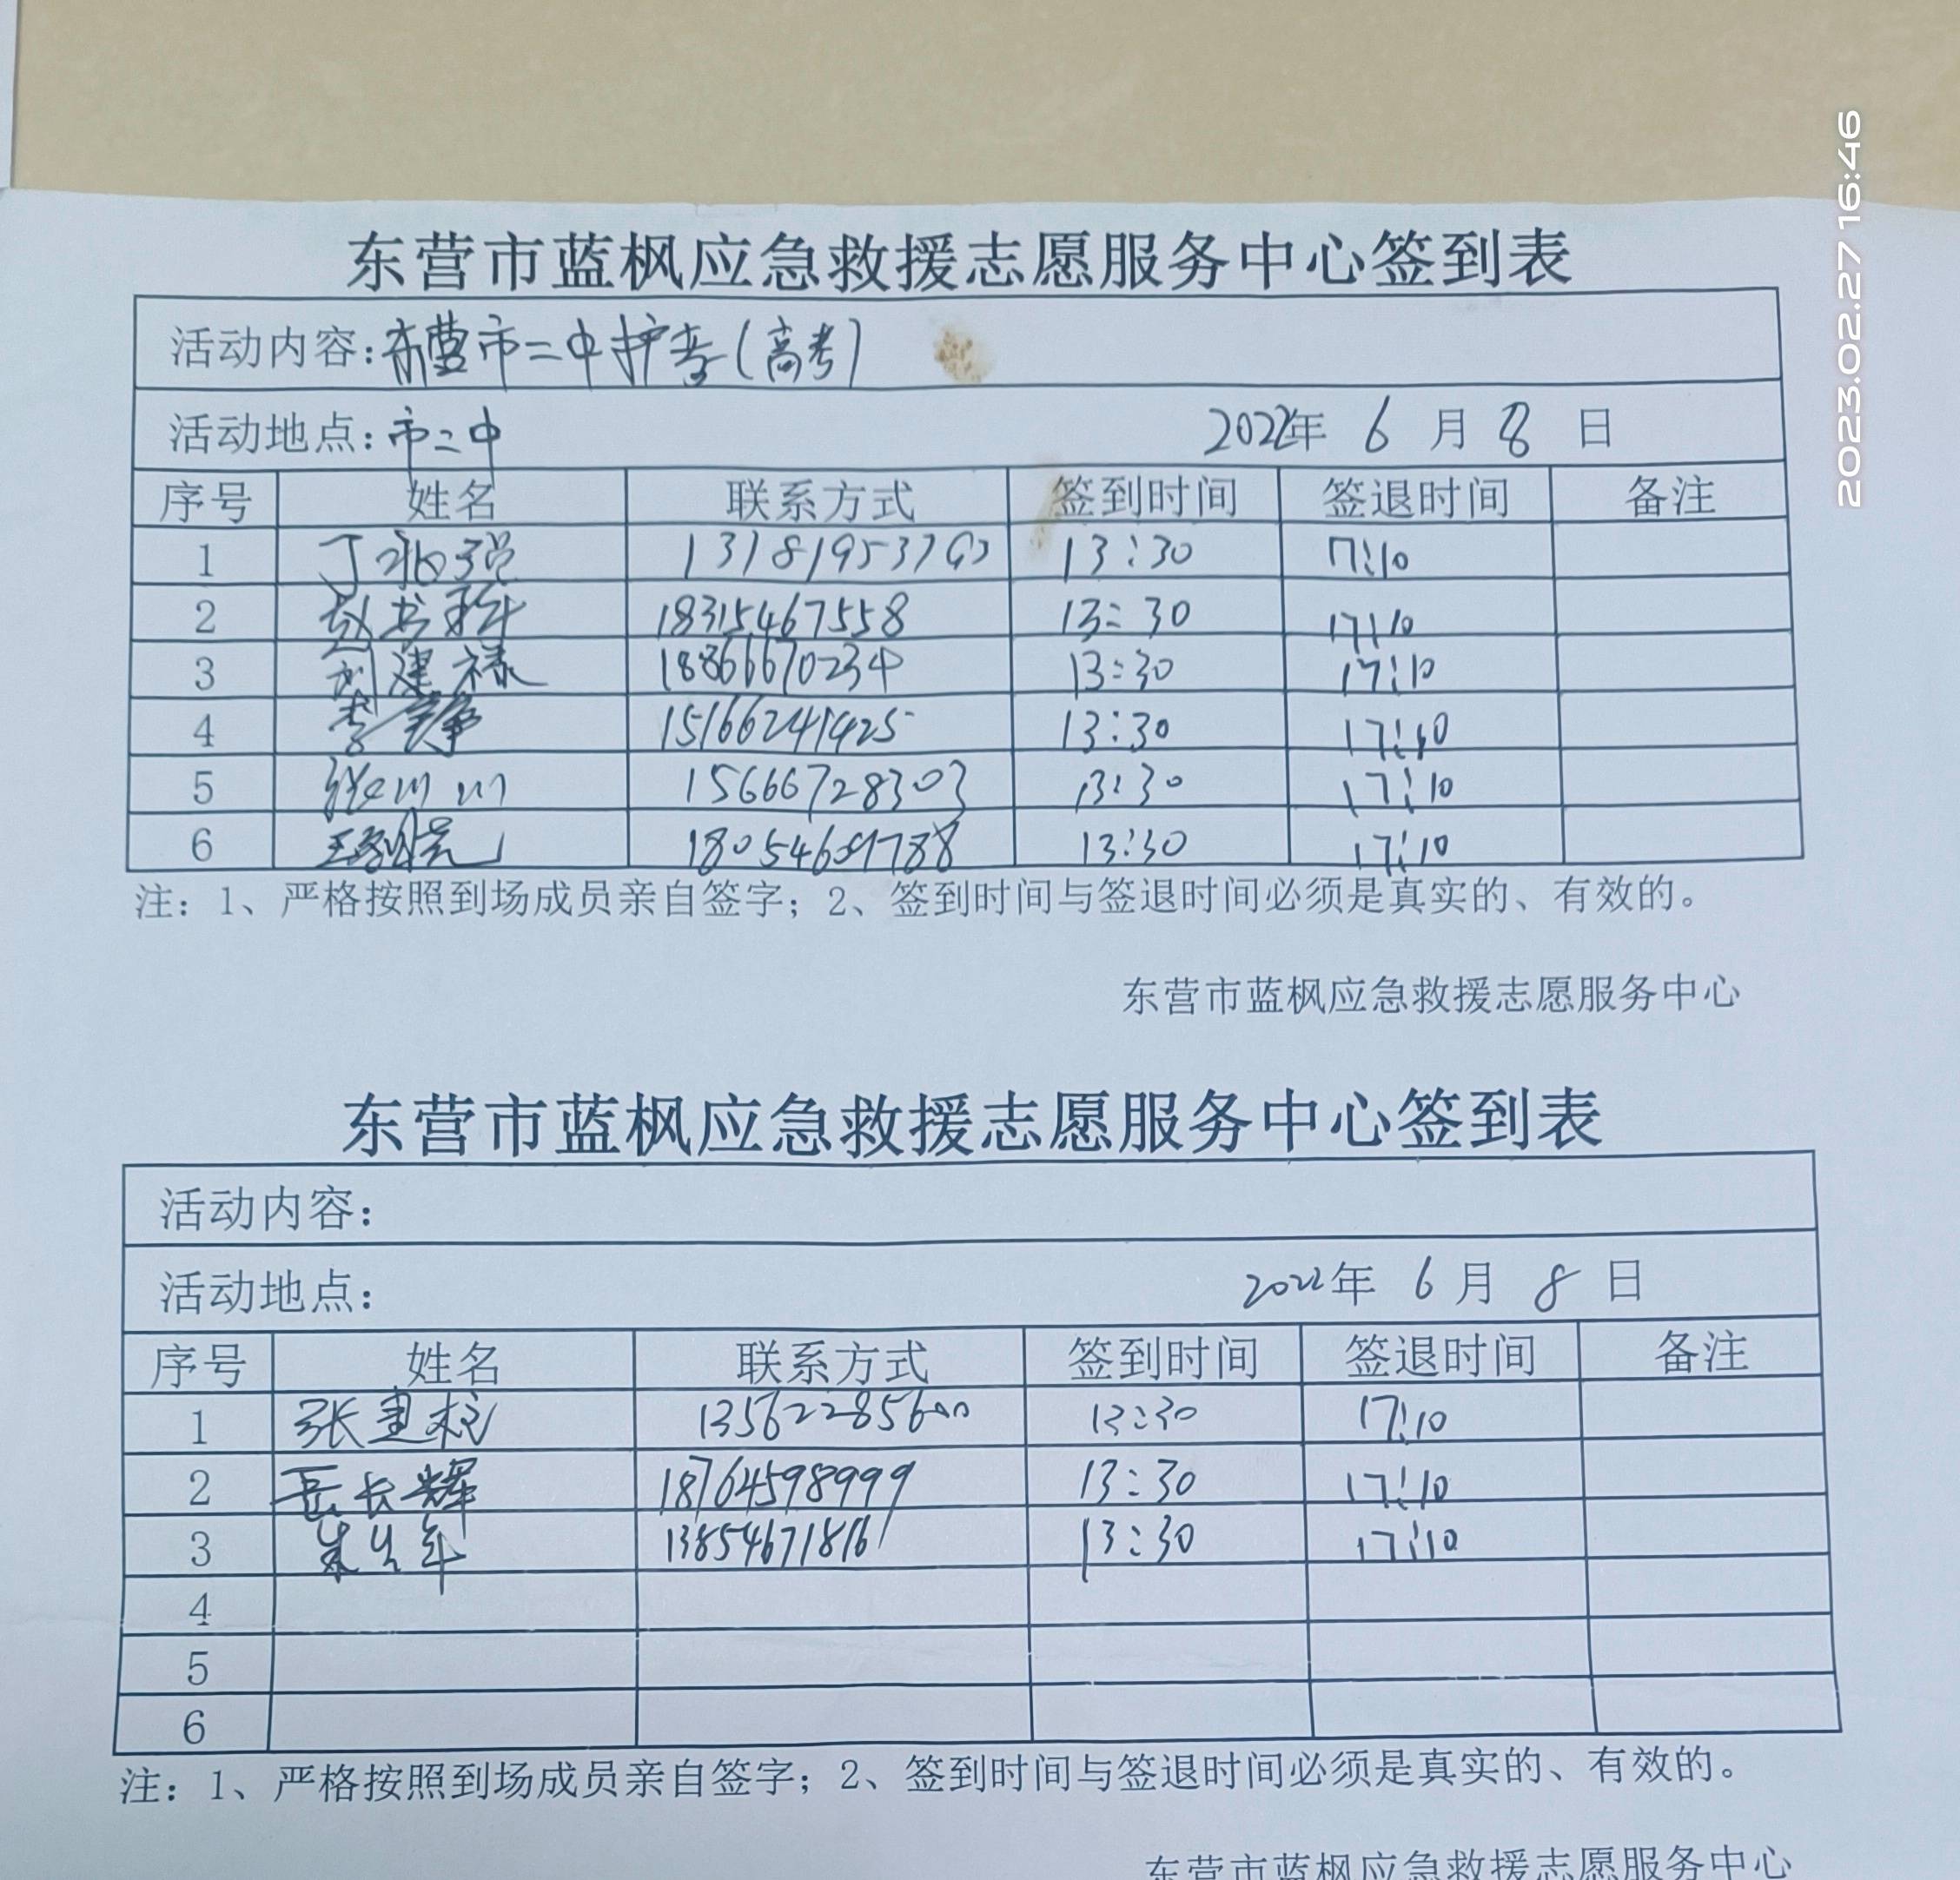 2023.02.27 16:46
东营市蓝枫应急救援志愿服务中心签到表
活动内容:东营市二中护考(高考)
活动地点:市二中 2022年 6 月 8 日
序号 姓名 联系方式 签到时间 签退时间 备注
1 丁 13:30 17:10
2 赵 18315467558 13:30 17:10
3 刘建禄 18866670234 13:30 17:10
4 李 15166241425 13:30 17:10
5 张川川 15666728303 13:30 17:10
6 王 13:30 17:10
注：1、严格按照到场成员亲自签字；2、签到时间与签退时间必须是真实的、有效的。
东营市蓝枫应急救援志愿服务中心
东营市蓝枫应急救援志愿服务中心签到表
活动内容：
活动地点： 2022年 6 月 8 日
序号 姓名 联系方式 签到时间 签退时间 备注
1 张建 13562285600 13:30 17:10
2 岳长辉 18764598999 13:30 17:10
3 朱 13854671816 13:30 17:10
4
5
6
注：1、严格按照到场成员亲自签字；2、签到时间与签退时间必须是真实的、有效的。
东营市蓝枫应急救援志愿服务中心